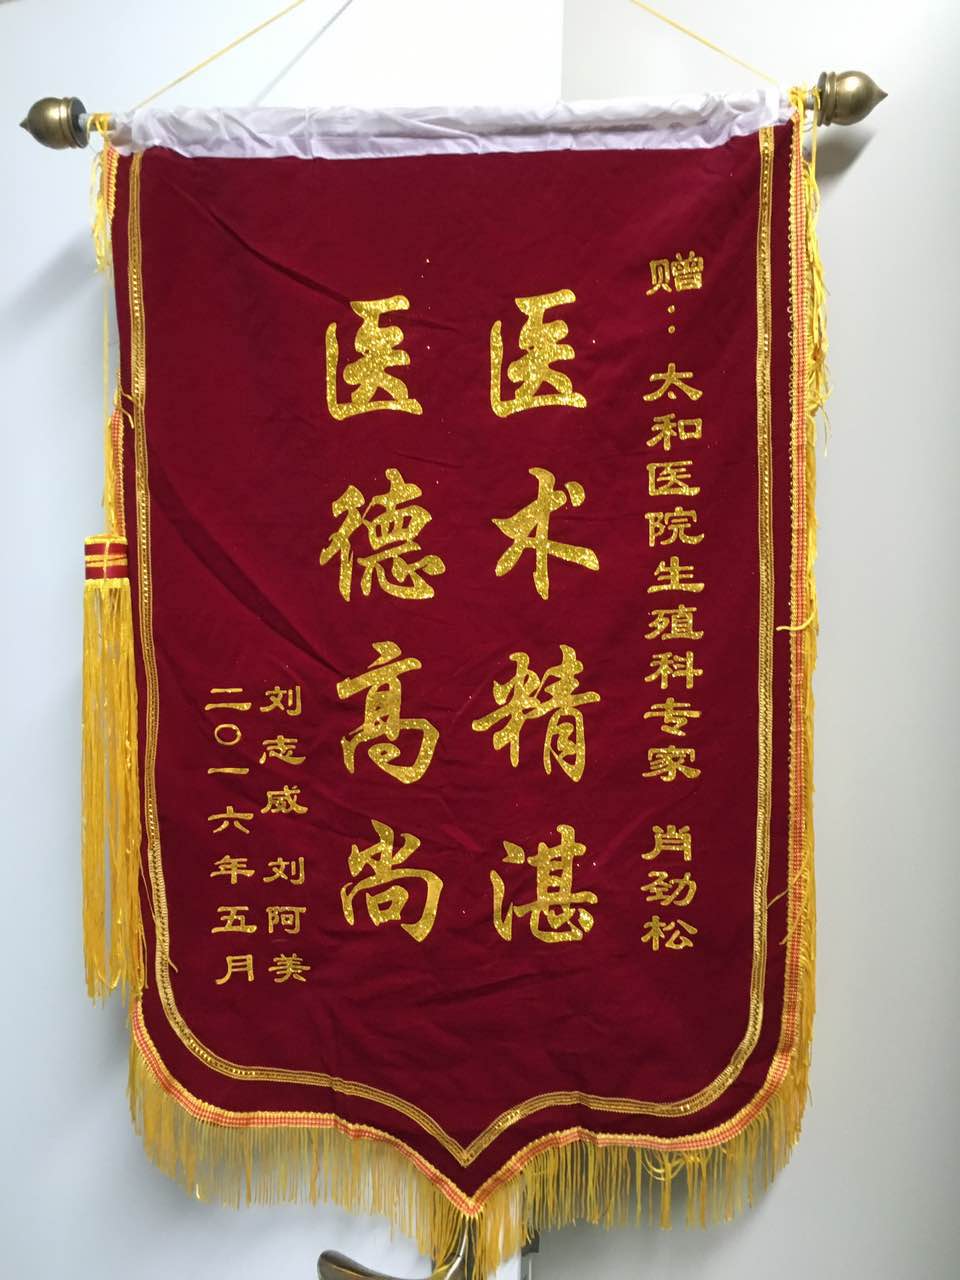 赠：太和医院生殖科专家 肖劲松
医术精湛
医德高尚
刘志威 刘阿美
二〇一六年五月